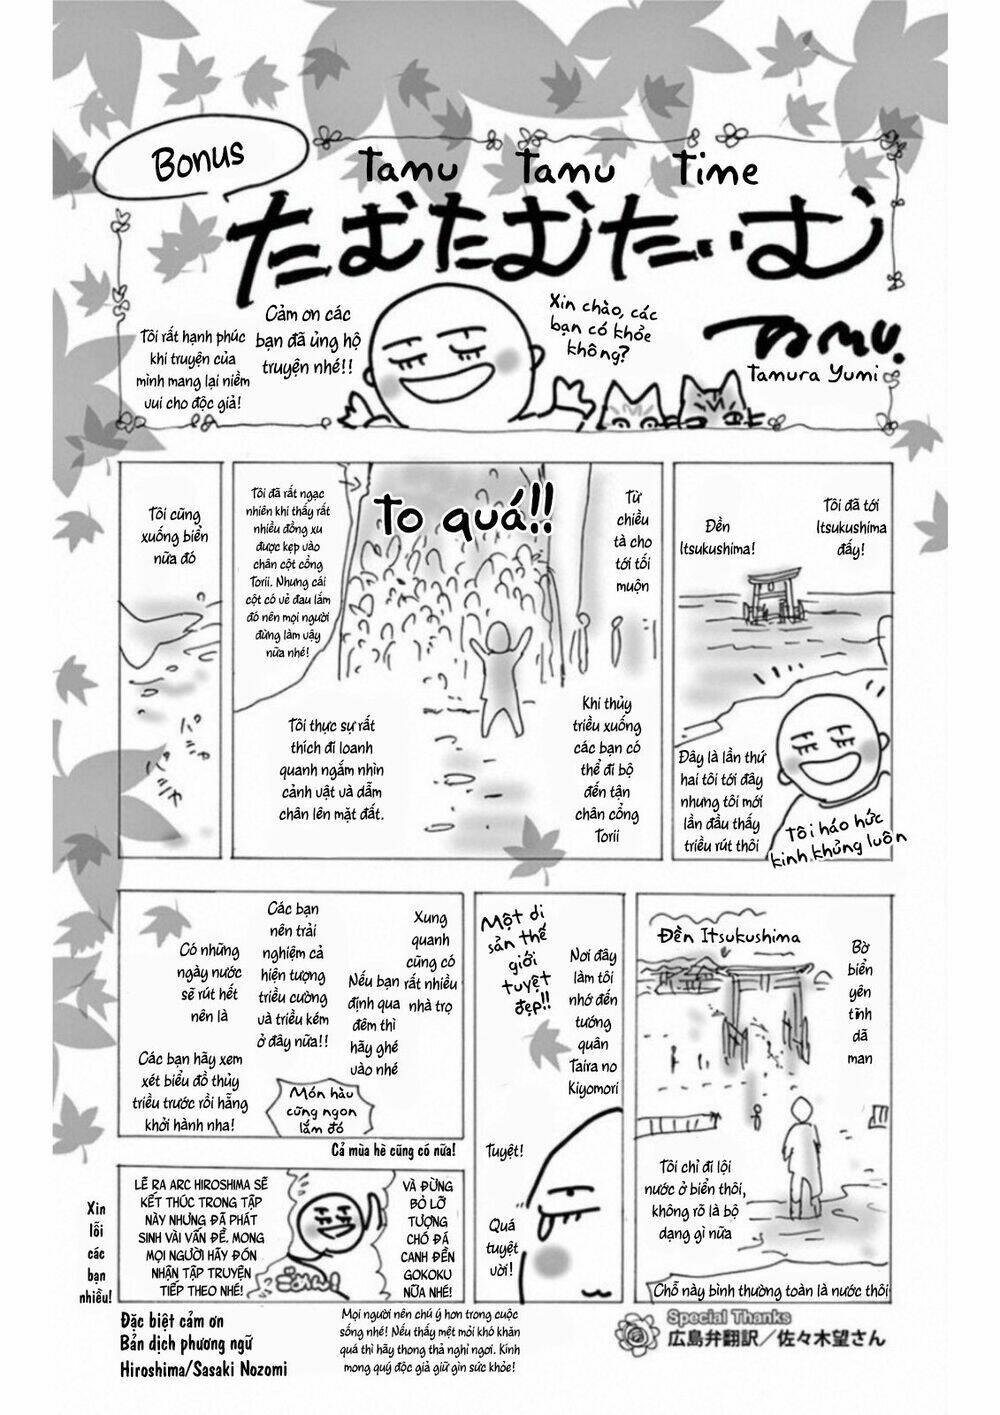 Bonus
Tamu Tamu Time
たむたむたいむ
Xin chào, các
bạn có khỏe
không?
TAMU.
Tamura Yumi
Cảm ơn các
bạn đã ủng hộ
truyện nhé!!
Tôi rất hạnh phúc
khi truyện của
mình mang lại niềm
vui cho độc giả!
Tôi đã tới
Itsukushima
đấy!
Đền
Itsukushima!
Đây là lần thứ
hai tôi tới đây
nhưng tôi mới
lần đầu thấy
triều rút thôi
Tôi háo hức
kinh khủng luôn
Từ
chiều
tà cho
tới tối
muộn
To quá!!
Tôi đã rất ngạc
nhiên khi thấy rất
nhiều đồng xu
được kẹp vào
chân cột cổng
Torii. Nhưng cái
cột có vẻ đau lắm
đó nên mọi người
đừng làm vậy
nữa nhé!
Khi thủy
triều xuống
các bạn có
thể đi bộ
đến tận
chân cổng
Torii
Tôi thực sự rất
thích đi loanh
quanh ngắm nhìn
cảnh vật và dẫm
chân lên mặt đất.
Tôi cũng
xuống biển
nữa đó
パシャ
パシャ
Bờ
biển
yên
tĩnh
dã
man
Đền Itsukushima
Tôi chỉ đi lội
nước ở biển thôi,
không rõ là bộ
dạng gì nữa
Chỗ này bình thường toàn là nước thôi
Nơi đây
làm tôi
nhớ đến
tướng
quân
Taira no
Kiyomori
Một di
sản thế
giới
tuyệt
đẹp!!
Tuyệt!
Quá
tuyệt
vời!
Xung
quanh
cũng có
rất nhiều
nhà trọ
Nếu bạn
định qua
đêm thì
hãy ghé
vào nhé
Các bạn
nên trải
nghiệm cả
hiện tượng
triều cường
và triều kém
ở đây nữa!!
Có những
ngày nước
sẽ rút hết
nên là
Các bạn hãy xem
xét biểu đồ thủy
triều trước rồi hẵng
khởi hành nha!
Món hàu
cũng ngon
lắm đó
Cả mùa hè cũng có nữa!
VÀ ĐỪNG
BỎ LỠ
TƯỢNG
CHÓ ĐÁ
CANH ĐỀN
GOKOKU
NỮA NHÉ!
LẼ RA ARC HIROSHIMA SẼ
KẾT THÚC TRONG TẬP
NÀY NHƯNG ĐÃ PHÁT
SINH VÀI VẤN ĐỀ. MONG
MỌI NGƯỜI HÃY ĐÓN
NHẬN TẬP TRUYỆN
TIẾP THEO NHÉ!
ごめん!
Xin
lỗi
các
bạn
nhiều!
Đặc biệt cảm ơn
Bản dịch phương ngữ
Hiroshima/Sasaki Nozomi
Mọi người nên chú ý hơn trong cuộc
sống nhé! Nếu thấy mệt mỏi khó khăn
quá thì hãy thong thả nghỉ ngơi. Kính
mong quý độc giả giữ gìn sức khỏe!
Special Thanks
広島弁翻訳/佐々木望さん